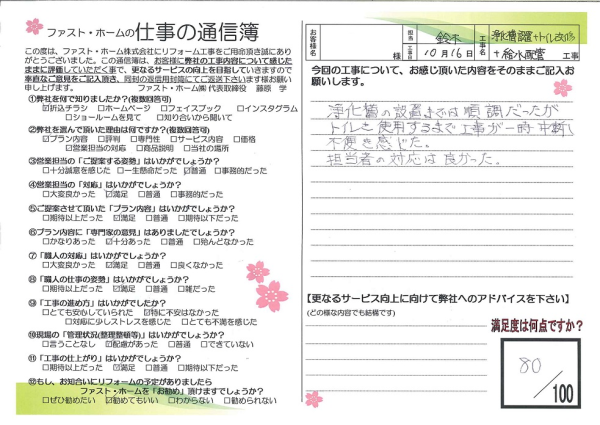 ファスト・ホームの仕事の通信簿
この度は、ファスト・ホーム株式会社にリフォーム工事をご用命頂き誠にあり
がとうございました。この通信簿は、お客様に弊社の工事内容について感じた
ままに評価していただく事で、更なるサービスの向上を目指していきますので
率直なご意見をご記入頂き、同封の返信用封筒にてご返送下さいます様お願い
申し上げます。
ファスト・ホーム㈱ 代表取締役 藤原 学
①弊社を何で知りましたか?(複数回答可)
☑折込チラシ □ホームページ □フェイスブック □インスタグラム
□ショールームを見て □知り合いから聞いて
②弊社を選んで頂いた理由は何ですか?(複数回答可)
☑プラン内容 □評判 □専門性 □サービス内容 □価格
□営業担当の対応 □商品説明 □当社の場所
③営業担当の「ご提案する姿勢」はいかがでしょうか?
□十分誠意を感じた □一生懸命だった ☑普通 □事務的だった
④営業担当の「対応」はいかがでしょうか?
□大変良かった ☑満足 □普通 □事務的だった
⑤ご提案させて頂いた「プラン内容」はいかがでしょうか?
□期待以上だった ☑満足 □普通 □期待以下だった
⑥プラン内容に「専門家の意見」はありましたでしょうか?
□かなりあった ☑十分あった □普通 □殆んどなかった
⑦「職人の対応」はいかがでしょうか?
□大変良かった ☑満足 □普通 □良くなかった
⑧「職人の仕事の姿勢」はいかがでしょうか?
□期待以上だった ☑満足 □普通 □雑だった
⑨「工事の進め方」はいかがでしたか?
□とても安心していられた ☑特に不安はなかった
□対応に少しストレスを感じた □とても不満を感じた
⑩現場の「管理状況(整理整頓等)」はいかがでしょうか?
□言うことなし ☑配慮があった □普通 □できていない
⑪「工事の仕上がり」はいかがでしょうか?
□期待以上だった ☑満足 □普通 □期待以下だった
⑫もし、お知合いにリフォームの予定がありましたら
ファスト・ホームを「お勧め」頂けますでしょうか?
□ぜひ勧めたい ☑勧めてもいい □わからない □勧められない
お客様名
様
担当
鈴木
工事日
10月16日
工事名
浄化槽設置+トイレ改修
+給水配管
工事
今回の工事について、お感じ頂いた内容をそのままご記入お
願いします。
浄化槽の設置までは順調だったが
トイレを使用するまで工事が一時中断し
不便を感じた。
担当者の対応は良かった。
【更なるサービス向上に向けて弊社へのアドバイスを下さい】
(どの様な内容でも結構です)
満足度は何点ですか?
80
/100